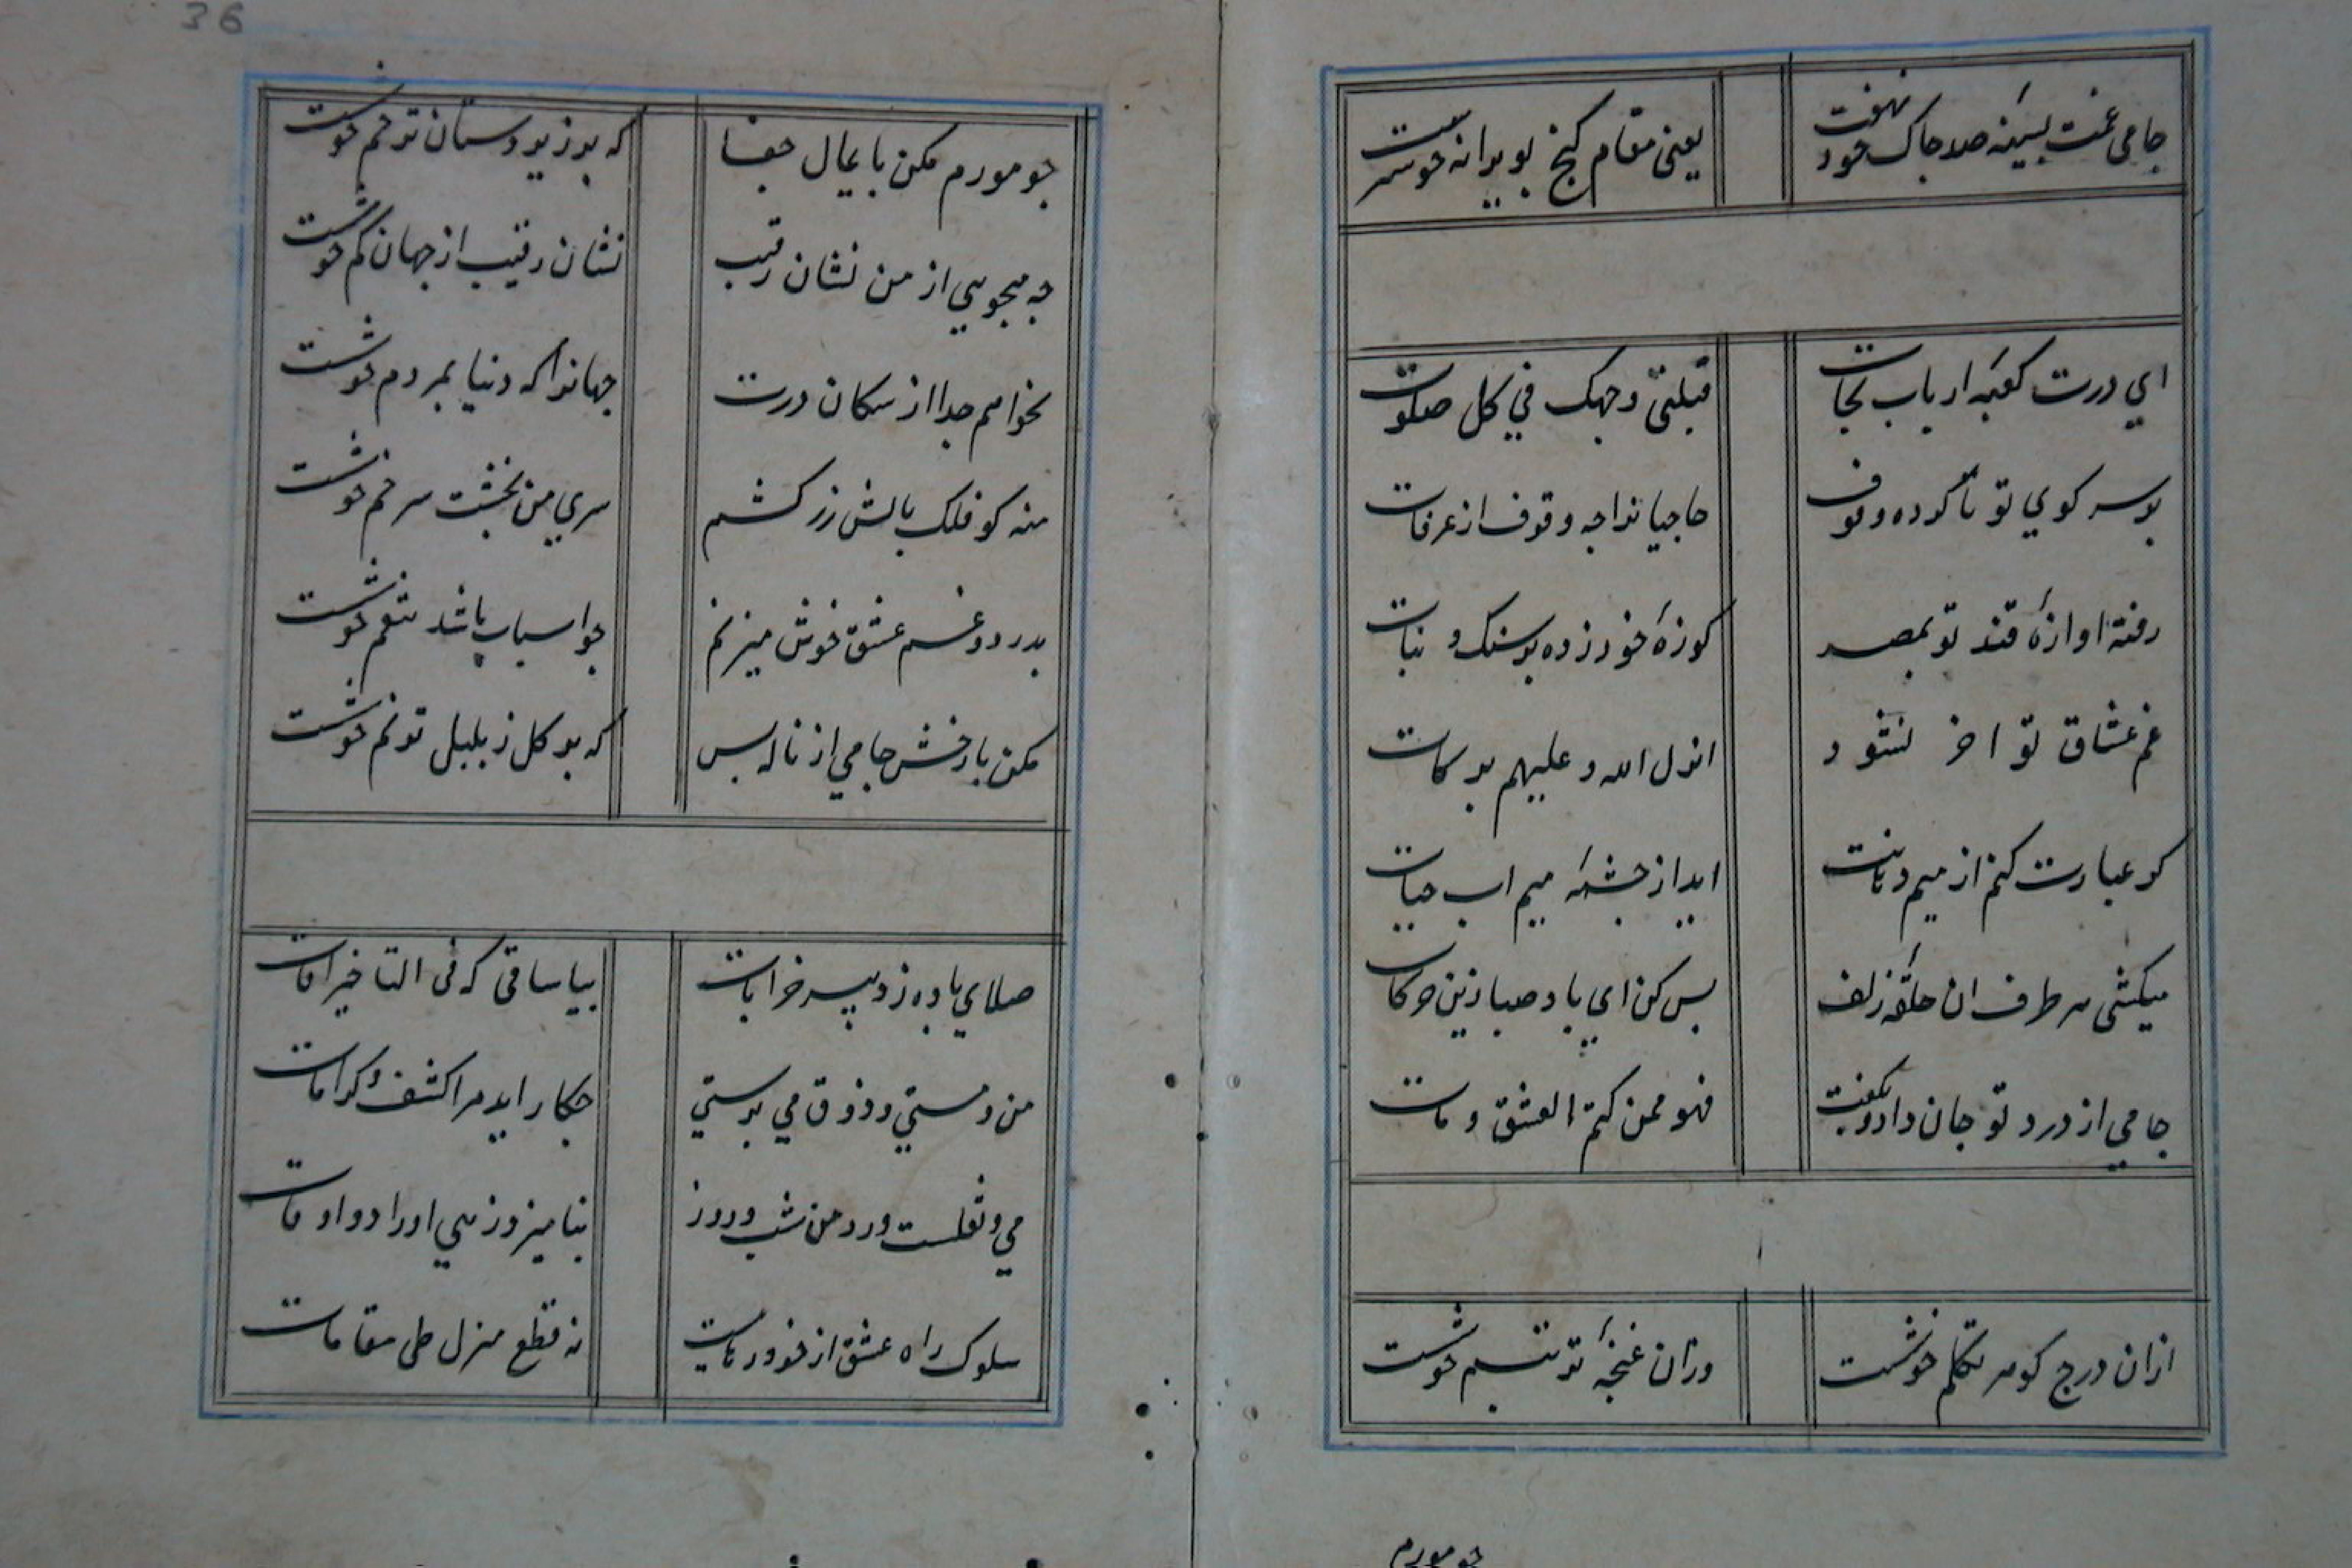 جامی غمت بسینه صد جاک خود نهفت
یعنی مقام کنج بویرانه خوشترست
ای درت کعبهٔ ارباب نجات
قبلتی وجهک فی کل صلوت
بر سر کوی تو ناکرده وقوف
حاجیانرا چه وقوف از عرفات
رفته اوازهٔ قند تو بمصر
کوزهٔ خود زده بر سنک و نبات
غم عشاق تو اخر نشود
انزل الله و علیهم برکات
کر عبارت کنم از میم دهانت
اید از جشمهٔ میم اب حیات
میکشی هر طرف ان حلقهٔ زلف
بس کن ای باد صبا زین حرکات
جامی از درد تو جان داد و نکفت
فهو ممن کتم العشق و مات
ازان درج کوهر تکلم خوشست
وزان غنجهٔ تر تبسم خوشست
جو مورم
36
جو مورم مکن بایمال جفا
که بر زیردستان ترحم خوشست
جه میجویی از من نشان رقیب
نشان رقیب از جهان کم خوشست
نخواهم جدا از سکان درت
جهانرا که دنیا بمردم خوشست
منه کو فلک بالش زر کشم
سری من بخشت سر خم خوشست
بدرد و غم عشق خوش میزنم
جو اسباب باشد تنعم خوشست
مکن بارخش جامی از ناله بس
که بر کل ز بلبل ترنم خوشست
صلای باده زد پیر خرابات
بیا ساقی که فی التاخیر افات
من و مستی و ذوق می برستی
جکار اید مرا کشف و کرامات
می و نقلست ورد من شب و روز
بنامیزد زهی اوراد و اوقات
سلوک راه عشق از خود رهاییت
نه قطع منزل طی مقامات